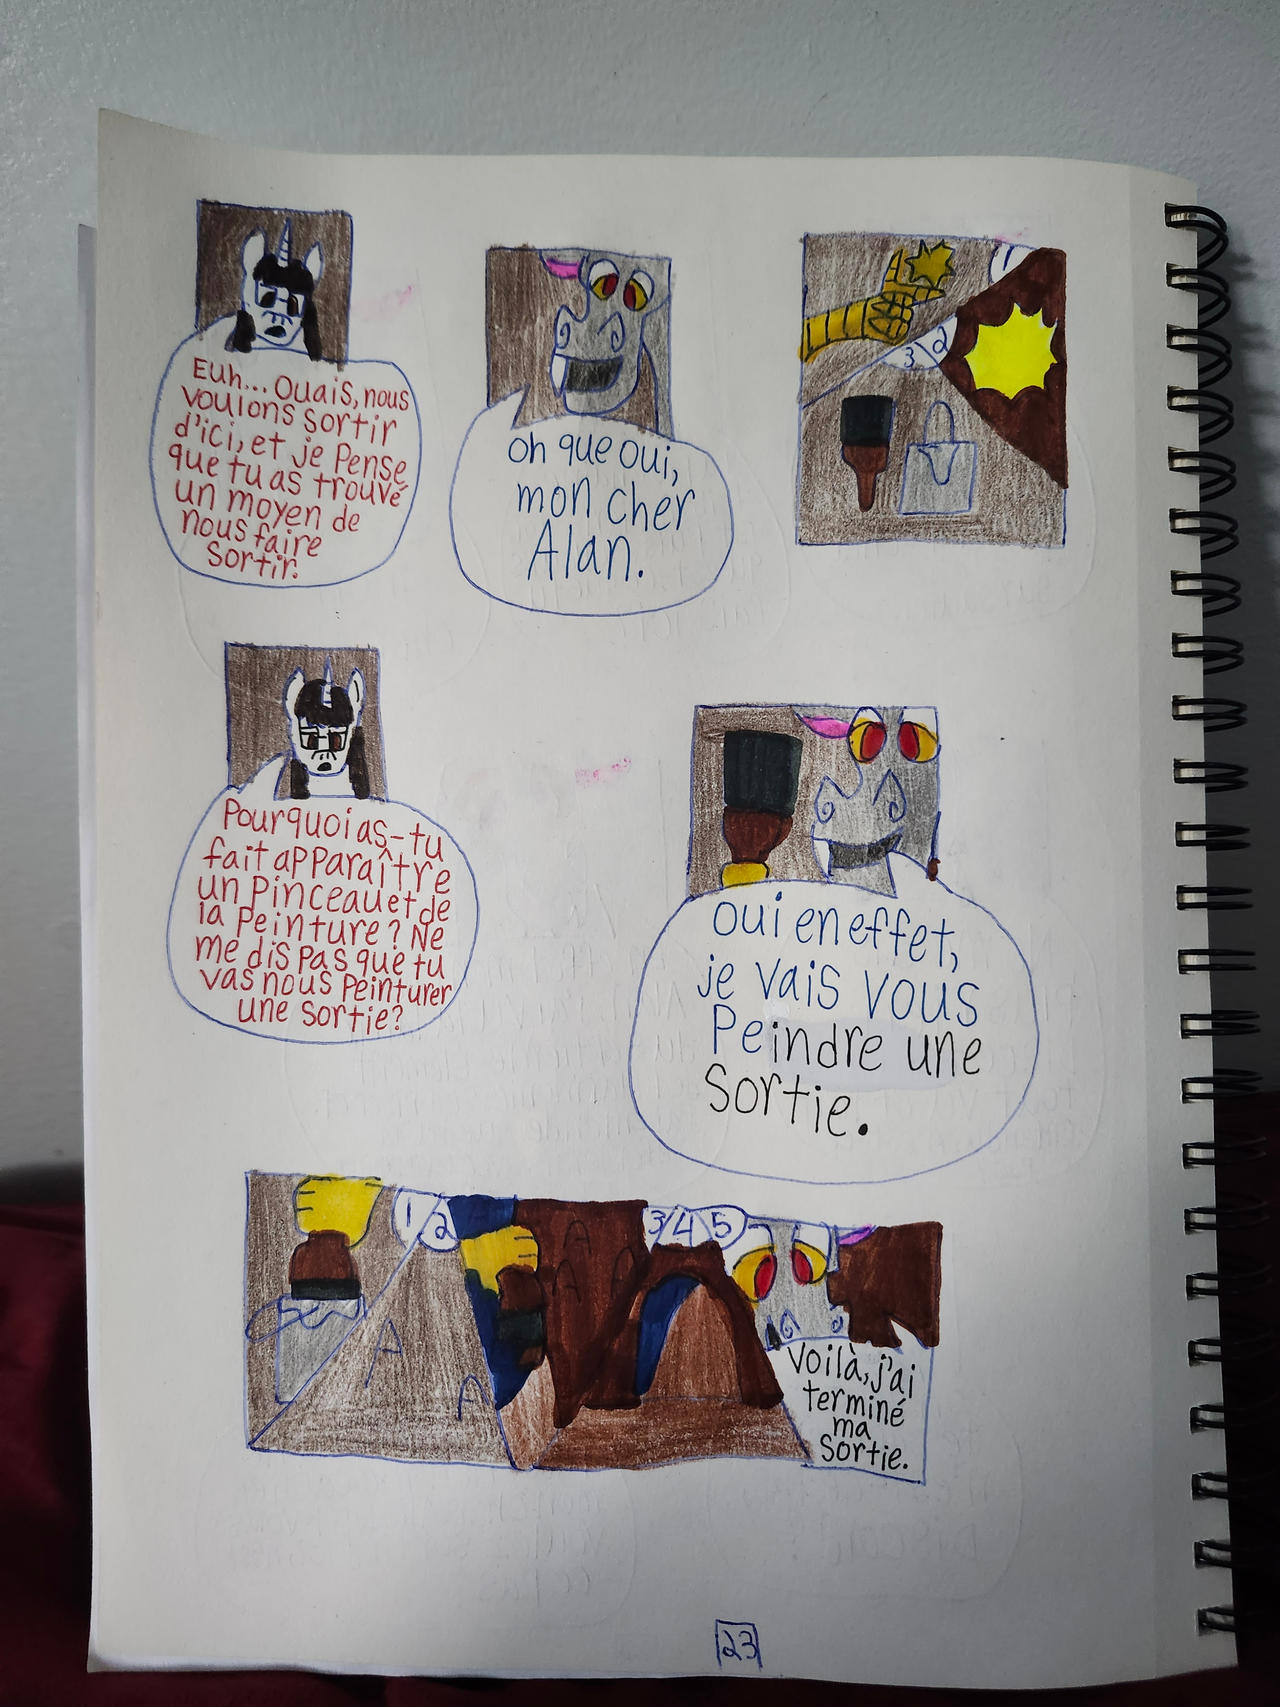 Euh... Ouais, nous
voulons sortir
d'ici, et je pense
que tu as trouvé
un moyen de
nous faire
sortir.
oh que oui,
mon cher
Alan.
1
2
3
Pourquoi as-tu
fait apparaître
un pinceau et de
la peinture? Ne
me dis pas que tu
vas nous peinturer
une sortie?
oui en effet,
je vais vous
Peindre une
sortie.
1
2
3 4 5
Voilà, j'ai
terminé
ma
sortie.
23